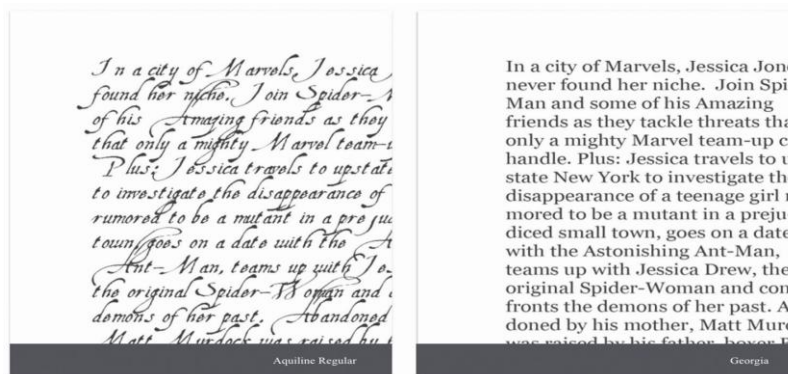 In a city of Marvels, Jessica
found her niche. Join Spider-
of his Amazing friends as they
that only a mighty Marvel team-
Plus: Jessica travels to upstate
to investigate the disappearance of
rumored to be a mutant in a preju
town, goes on a date with the
Ant-Man, teams up with Je
the original Spider-Woman and
demons of her past. Abandoned
Matt Murdock was raised by
Aquiline Regular
In a city of Marvels, Jessica Jon
never found her niche. Join Spi
Man and some of his Amazing
friends as they tackle threats tha
only a mighty Marvel team-up c
handle. Plus: Jessica travels to u
state New York to investigate th
disappearance of a teenage girl r
mored to be a mutant in a preju
diced small town, goes on a date
with the Astonishing Ant-Man,
teams up with Jessica Drew, the
original Spider-Woman and con
fronts the demons of her past. A
doned by his mother, Matt Mur
was raised by his father, boxer
Georgia